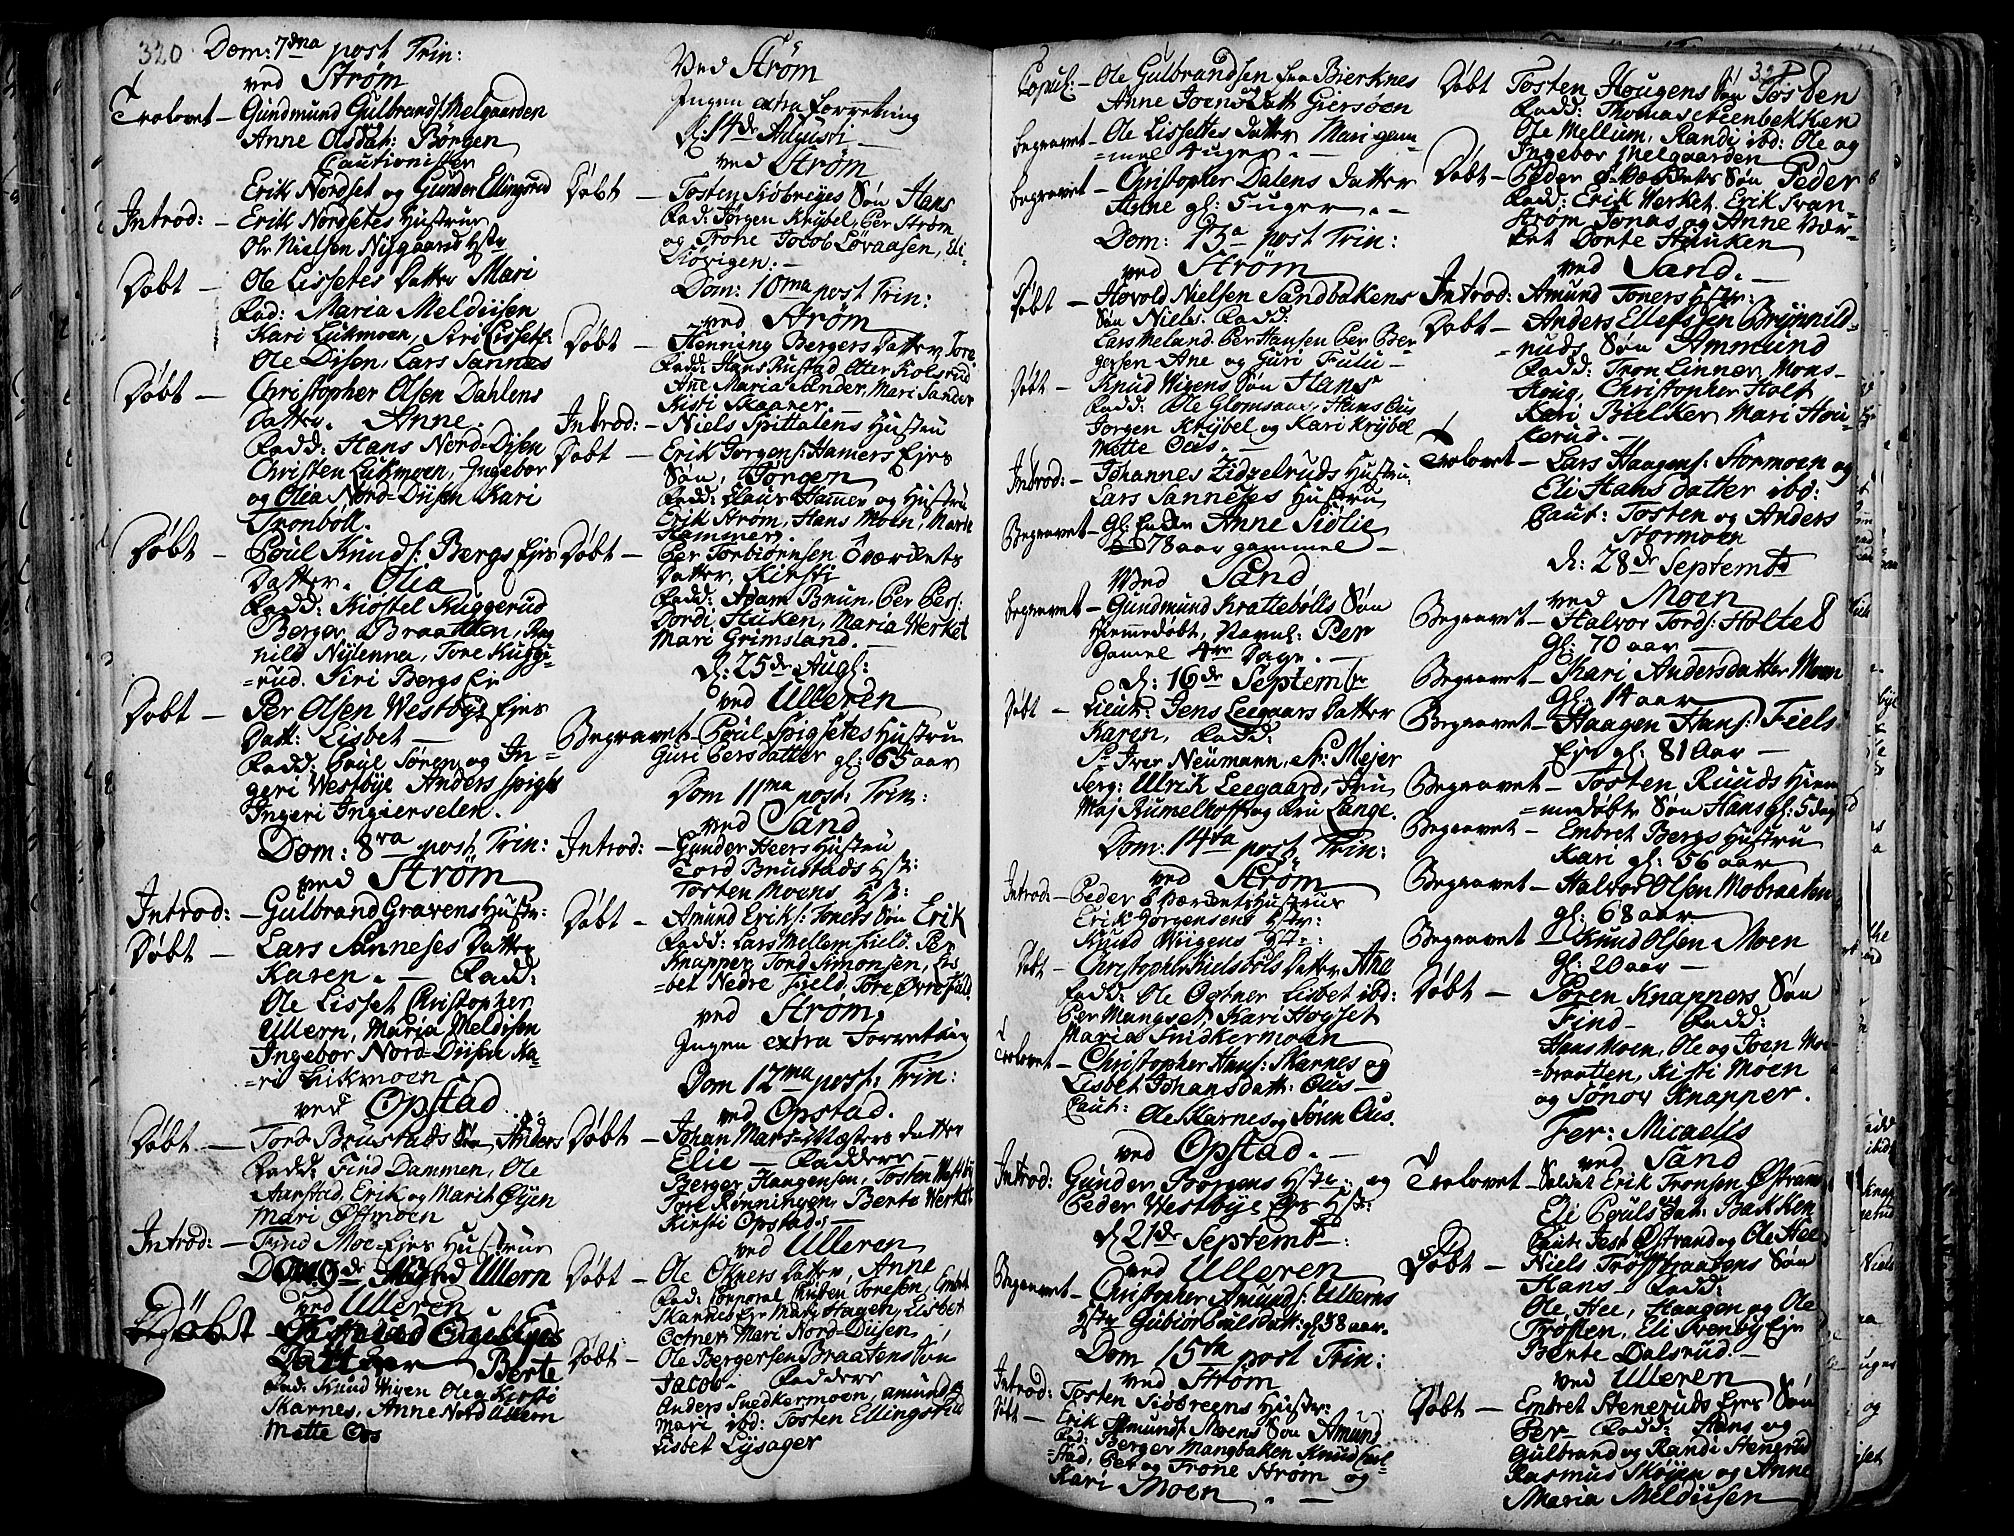 320. Dom: 7dna post Trin:
ved Strøm
Trolovet - Gundmund Gulbrands: Melgaarden
Anne Olsdat: Børgen
Cautionister
Erik Nordset og Gunder Ellingsrud
Introd: - Erik Nordsetes Hustrue
Ole Nielsen Nijgaards Hstr
Døbt - Ole Lissetes Datter Mari
Fad: Maria Meldiisen
Kari Lukmoen, Siri Lisset:
Ole Disen, Lars Sannes
Døbt - Christopher Olsen Dahlens
Datter. Anne.
Fadd: Hans Nord-Disen
Christen Lukmoen, Ingebor
og Olia Nord-Diisen Kari
Tronbøll.
Døbt - Poul Knuds: Bergs Ejes
Datter. Olia
Fadd: Kiøstel Kuggerud
Berger Braatten, Rag
nild Nylenna, Tore Kuggi-
=rud. Siri Bergs Ei
Døbt - Per Olsen Westbye Ejes
Datt: Lisbet -
Fadd: Poul Søren og In-
geri Westbye Anders Spigset
Ingeri Ingierselen.
Dom: 8va post Trin:
ved Strøm
Introd: - Gulbrand Gravens Hustr:
Døbt - Lars Sanneses Datter
Karen. - Fadd:
Ole Lisset Christopher
Ullern, Maria Meldisen
Ingebor Nord-Diisen Ka-
=ri Likmoen
ved Opstad
Døbt - Tord Brustads Søn Anders
Fadd: Find Dammen, Ole
Aarstad, Erik og Marit Øyen
Mari Ostmoen
Introd: - Find Moe-Ejes Hustrue
ved Ulleren
Døbt - Engebyes
Datter Berte
Fad: Knud Wigen Ole og Kirsti
Skarnes, Anne Nord Ullern
Mette Ous
Ved Strøm
Ingen extra Forretning
d: 14de Augusti -
ved Strøm
Døbt - Tosten Siøbreyes Søn Hans
Fad: Jørgen Krybel, Per Strøm
og Trone Jocob Løvaasen, Eli
Siøvigen. -
Dom: 10ma post Trin:
ved Strøm
Døbt - Henning Bergers Datter Tore
Fadd: Hans Rustad Otter Kolsrud
Ane Maria Sander, Mari Sander
Kisti Skaarer.
Introd: - Niels Spittalens Hustru
Døbt - Erik Jorgens: Hamers Ejes
Søn, Jørgen
Fadd: Claus Hamer og Hustru
Erik Strøm, Hans Moen, Marie
Hammer.
Døbt - Per Torbiørnsen Oværkets
Datter, Kirsti
Fadd: Adam Brun, Per Pers:
Tordi Huken, Maria Werket
Mari Grimsland. -
d: 25de Augs:
ved Ulleren
Begravet - Poul Spigsetes Hustru
Guri Persdatter gl: 65 aar
Dom 11ma post: Trin:
ved Sand
Introd: - Gunder Heers Hustru
Tord Brustads Hst:
Tosten Moens Hst:
Døbt - Amund Eriks: Toners Søn Erik
Fadd: Lars Mellem Field. Per
Knapper, Tord Simonsen, Lis
=bet Nedre Field. Tore Øvre Field
ved Strøm
Ingen extra Forretning
Dom 12ma post: Trin:
ved Opstad.
Døbt - Johan Mars-Masters datter
Elie - Faddere -
Berger Haagensen, Tosten Westbye
Tore Rønningen, Berte Werket
Kirsti Opstad: -
ved Ulleren
Døbt - Ole Octners Datter, Anne
Fad: Corporal Christen Toresen, Embret
Skarnes Eje Mari Hagen, Lisbet
Octner, Mari Nord-Diisen
Døbt - Ole Bergersen Braatens Søn
Jacob - Faddere
Anders Snedkermoen, Amund og
Mari ibd: Tosten Ellingsrud
Lisbet Lysager
Copul: - Ole Gulbrandsen Bierknes
og Anne Joensdatt Giersøen
Begravet - Ole Lissettes datter Mari gam-
=mel 4 uger. -
Begravet - Christopher Dalens datter
Anne gl: 5 uger. -
Dom: 13a post Trin:
ved Strøm
Døbt - Hovold Nielsen Sandbakens
Søn Niels: Fadd:
Lars Meland. Per Hansen Per Ber-
gersen Ane og Guri Fulu -
Døbt - Knud Wigens Søn Hans
Fadd: Ole Glomsaas, Hans Ous
Jorgen Krybel og Kari Krybel
Mette Ous. -
Introd: - Johannes Zidzelruds Hustru
Lars Sanneses Hustru
Begravet - gl: Enke Anne Siølie
78 aar gammel -
Wed Sand
Begravet - Gundmund Krattebølls Søn
Hiemmedøbt, Navnl: Per
Gamel 4re Dage. -
d: 16de September
Døbt - Lieut: Jens Leegaars Datter
Karen, Fadd:
Sr Iver Neumann, Sr: Mejer
Serg: Ulrik Leegaard, Fru
Maj Rumelhoff og Fru Lange.
Dom: 14da post Trin:
ved Strøm
Introd: - Peder Oværkets Hustrue
Erik Jorgensens Hstr:
Knud Wiigens Hst:
Døbt - Christopher Kielsbøls Datter Ana
Fadd: Ole Ogtner Lisbet ibd:
Per Mangset, Kari Høgset
Maria Snidkermoen
Trolovet - Christopher Hans: Skarnes og
Lisbet Johansdatt: Ous -
Caut: Ole Skarnes og Søren Ous.
ved Opstad. -
Introd: Gunder Joorgens Hstr: og
Peder Westbye Ejes Hst:
d 21de Septembr:
ved Ulleren
Begravet - Christopher Amunds: Ullerns
Hstr Gubiør Poulsdatt: gl 38 aar.
Dom 15ta post Trin:
ved Strøm
Introd: Tosten Siøbreens Hustr:
Døbt - Erik Amunds: Moens Søn Amund
Fad: Berger Mangbakken Knud
=stad, Per og Trone Strøm og
Kari Moen. -
321
Døbt Tosten Hougens Søn Tosten
Fadd: Thomas Steenbekken
Ole Mellum, Randi ibd: Ole og
Ingebor Melgaarden
Døbt - Peder Oværkets Søn Peder
Fadd: Erik Werket. Erik Svan-
strøm Jonas og Anne Vær-
ket Dorte Hauken
ved Sand. -
Introd: Amund Toners Hstr:
Døbt - Anders Ellefssen Brynild-
=ruds Søn Ammund
Fadd: Tron Linner Mons-
Houg, Christopher Holt
Kari Bielker Mari Hou
kerud. -
Trolovet - Lars Haagens: Stormoen og
Eli Hans datter ibd:
Caut: Tosten og Anders
Stormoen
d: 28de Septembr
ved Moen
Begravet - Halvor Tords: Holte
gl: 70 aar -
Begravet - Kari Andersdatter Moen
gl: 14 aar
Begravet - Haagen Hans: Fiels
Eje gl: 81 Aar -
Begravet - Tosten Ruuds Hiem
=medøbte Søn Hans gl: 5 dag
Begravet - Embret Bergs Hustru
Kari gl: 56 aar
Begravet - Halvor Olsen Mobraaten
gl: 68 aar
Begravet - Knud Olsen Moen
gl: 20 aar -
Døbt - Søren Knappers Søn
Find - Fadd:
Hans Moen, Ole og Joen Mo-
=braatten, Kisti Moen
og Sønov Knapper.
Fer: Micaelis
ved Sand
Trolovet - Soldat Erik Tronsen Østrand
og Eli Poulsdat: Bakken
Caut: Jest Østrand og Ole Hee
Døbt - Niels Trøftbraatens Søn
Hans - Fadd:
Ole Hee, Haagen og Ole
Trøften, Eli Svenby Eje
Berte Dalsrud. -
ved Ulleren
Døbt - Embret Stenerudz Ejes Søn
Per - Fadd: Hans og
Gulbrand og Randi Stengrud
Rasmus Skøyen og Anne
Maria Meldiisen